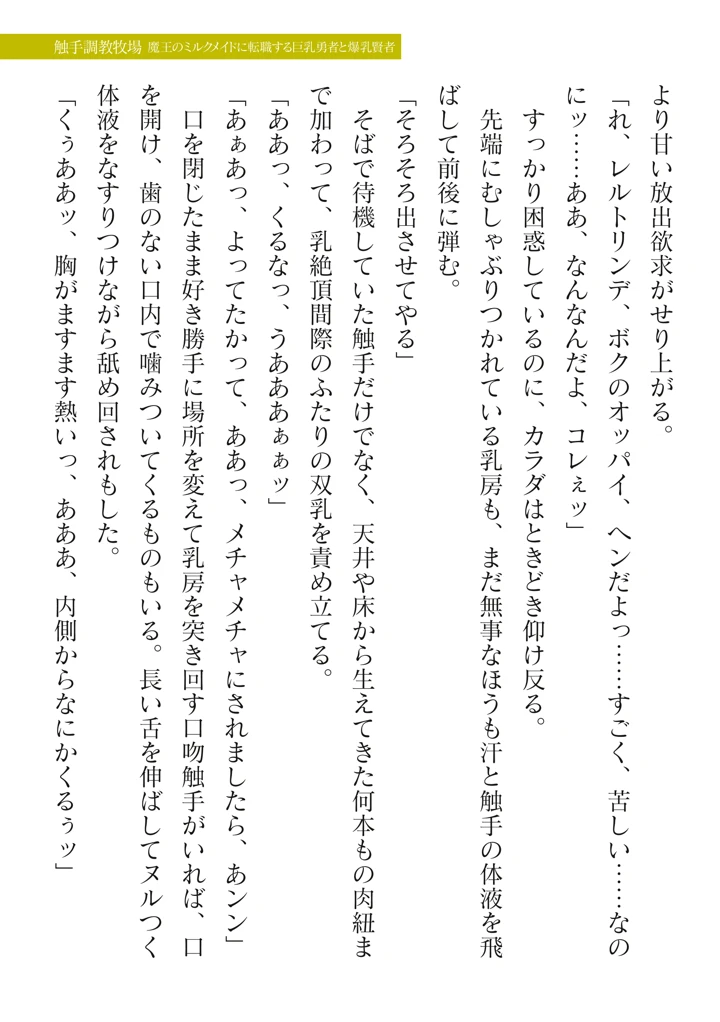 触手調教牧場 魔王のミルクメイドに転職する巨乳勇者と爆乳賢者
より甘い放出欲求がせり上がる。
「れ、レルトリンデ、ボクのオッパイ、ヘンだよっ……すごく、苦しい……なの
にッ……ああ、なんなんだよ、コレぇッ」
すっかり困惑しているのに、カラダはときどき仰け反る。
先端にむしゃぶりつかれている乳房も、まだ無事なほうも汗と触手の体液を飛
ばして前後に弾む。
「そろそろ出させてやる」
そばで待機していた触手だけでなく、天井や床から生えてきた何本もの肉紐ま
で加わって、乳絶頂間際のふたりの双乳を責め立てる。
「ああっ、くるなっ、うあああぁぁッ」
「あぁあっ、よってたかって、ああっ、メチャメチャにされましたら、あンン」
口を閉じたまま好き勝手に場所を変えて乳房を突き回す口吻触手がいれば、口
を開け、歯のない口内で噛みついてくるものもいる。長い舌を伸ばしてヌルつく
体液をなすりつけながら舐め回されもした。
「くぅああッ、胸がますます熱いっ、あああ、内側からなにかくるぅッ」